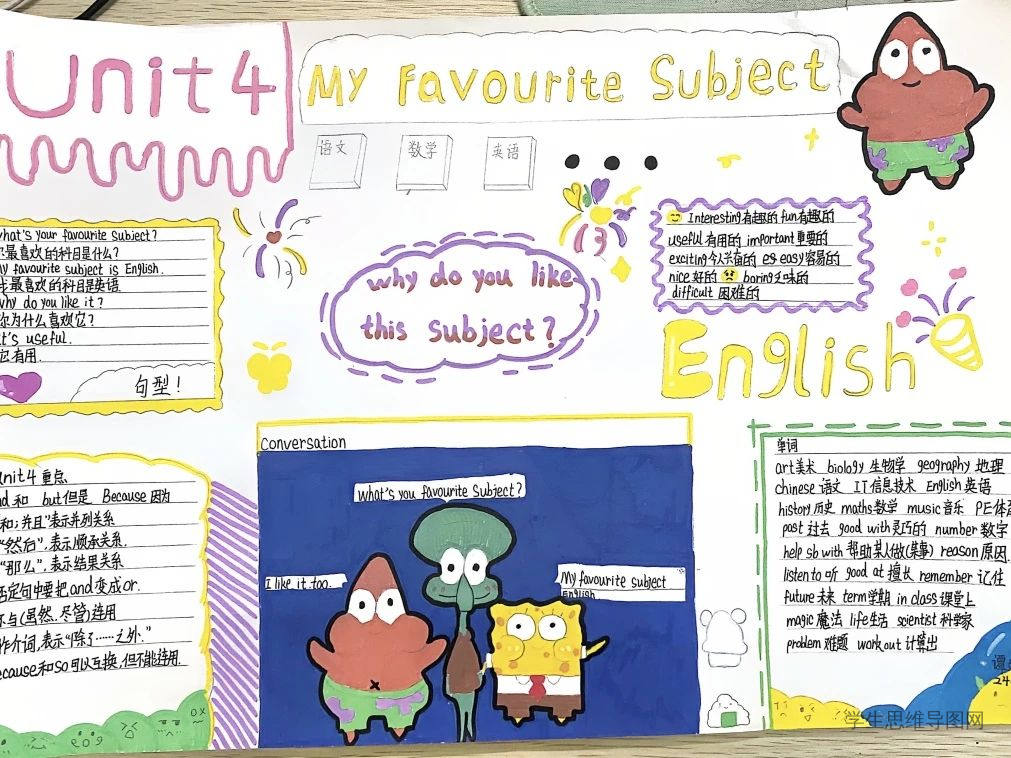 Unit 4
My Favourite Subject
语文 数学 英语
what's your favourite subject?
你最喜欢的科目是什么?
My favourite subject is English.
我最喜欢的科目是英语
why do you like it?
你为什么喜欢它?
It's useful.
它有用.
句型!
why do you like
this subject?
Interesting有趣的 fun有趣的
useful 有用的 important重要的
exciting令人兴奋的 easy容易的
nice好的 boring乏味的
difficult 困难的
English
Unit4 重点
and 和 but但是 Because 因为
和;并且"表示并列关系
"然后".表示顺承关系.
"那么".表示结果关系
否定句中要把and变成or.
不与(虽然.尽管)连用
作介词,表示"除了……之外."
Because和so可以互换,但不能连用.
Conversation
What's you favourite Subject?
I like it too.
My favourite subject
English
单词
art美术 biology 生物学 geography 地理
chinese 语文 IT信息技术 English 英语
history历史 maths数学 music音乐 PE体育
past 过去 good with灵巧的 number 数字
help sb with 帮助某人做(某事) reason 原因
listen to 听 good at 擅长 remember 记住
future 未来 term学期 in class 课堂上
magic 魔法 life生活 scientist 科学家
problem 难题 work out 计算出
谭
24
学生思维导图网